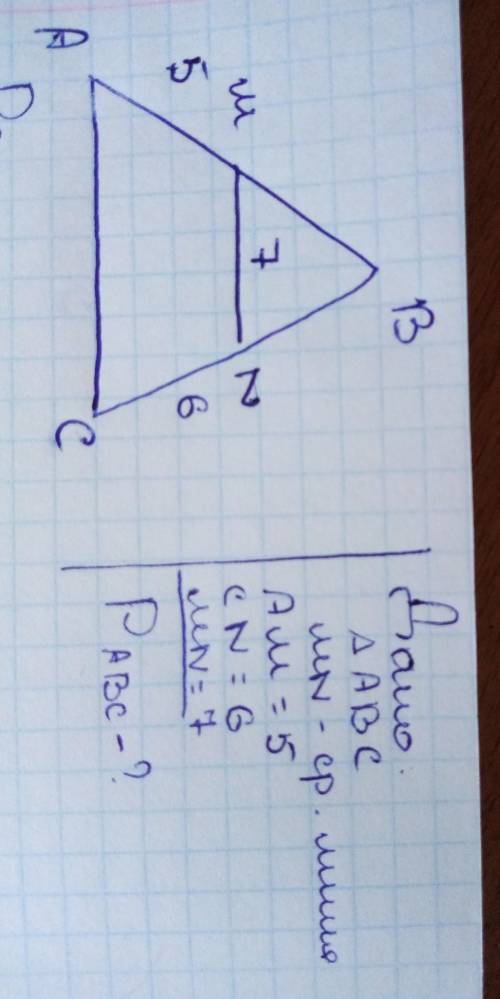 B
м
N
5
7
6
A
C
Дано:
Δ ABC
MN - ср. линия
AM = 5
CN = 6
MN = 7
P ABC - ?